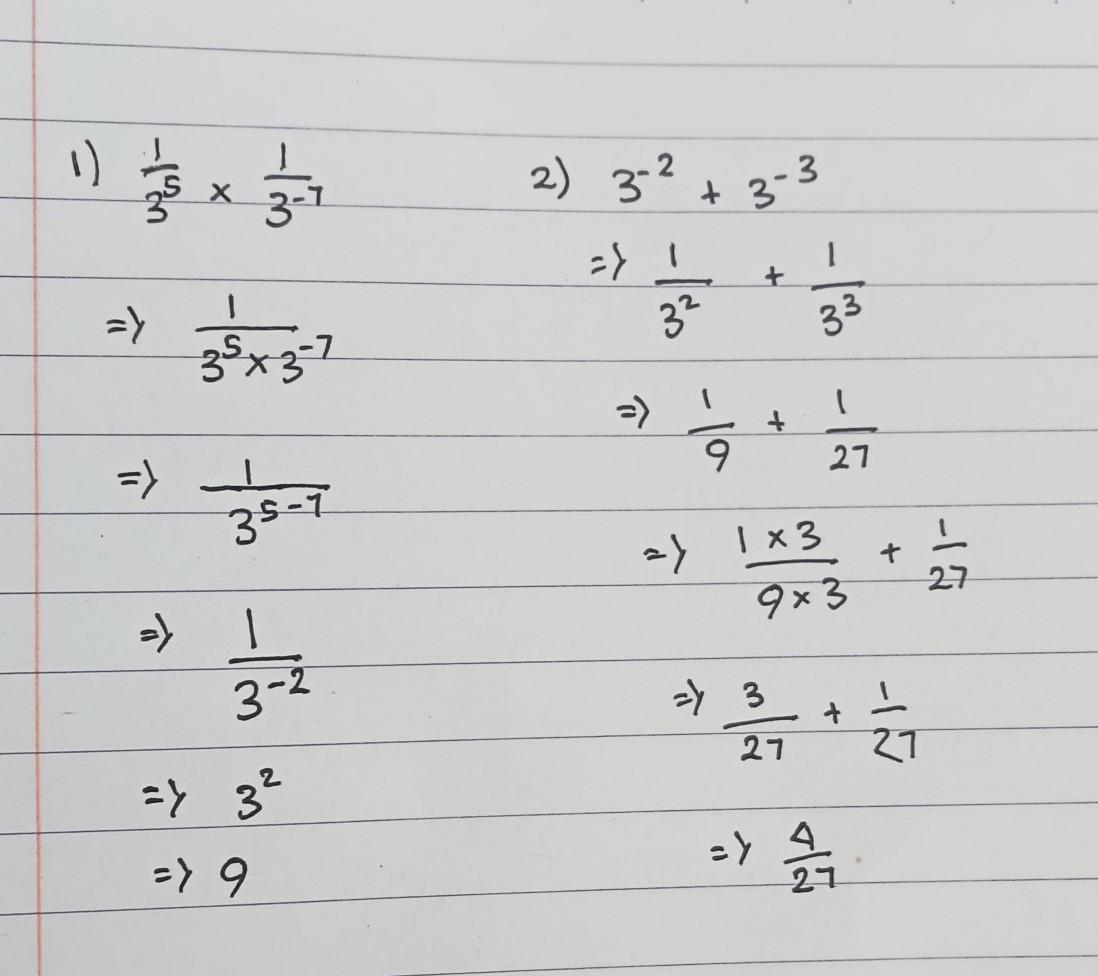 1) 1/3⁵ × 1/3⁻⁷
=> 1/(3⁵ × 3⁻⁷)
=> 1/3⁵⁻⁷
=> 1/3⁻²
=> 3²
=> 9
2) 3⁻² + 3⁻³
=> 1/3² + 1/3³
=> 1/9 + 1/27
=> (1 × 3)/(9 × 3) + 1/27
=> 3/27 + 1/27
=> 4/27